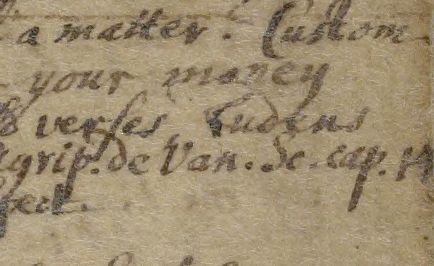 a matter. Custom
your money
verses Ludens
Agrip. de Van. Sc. cap. 14